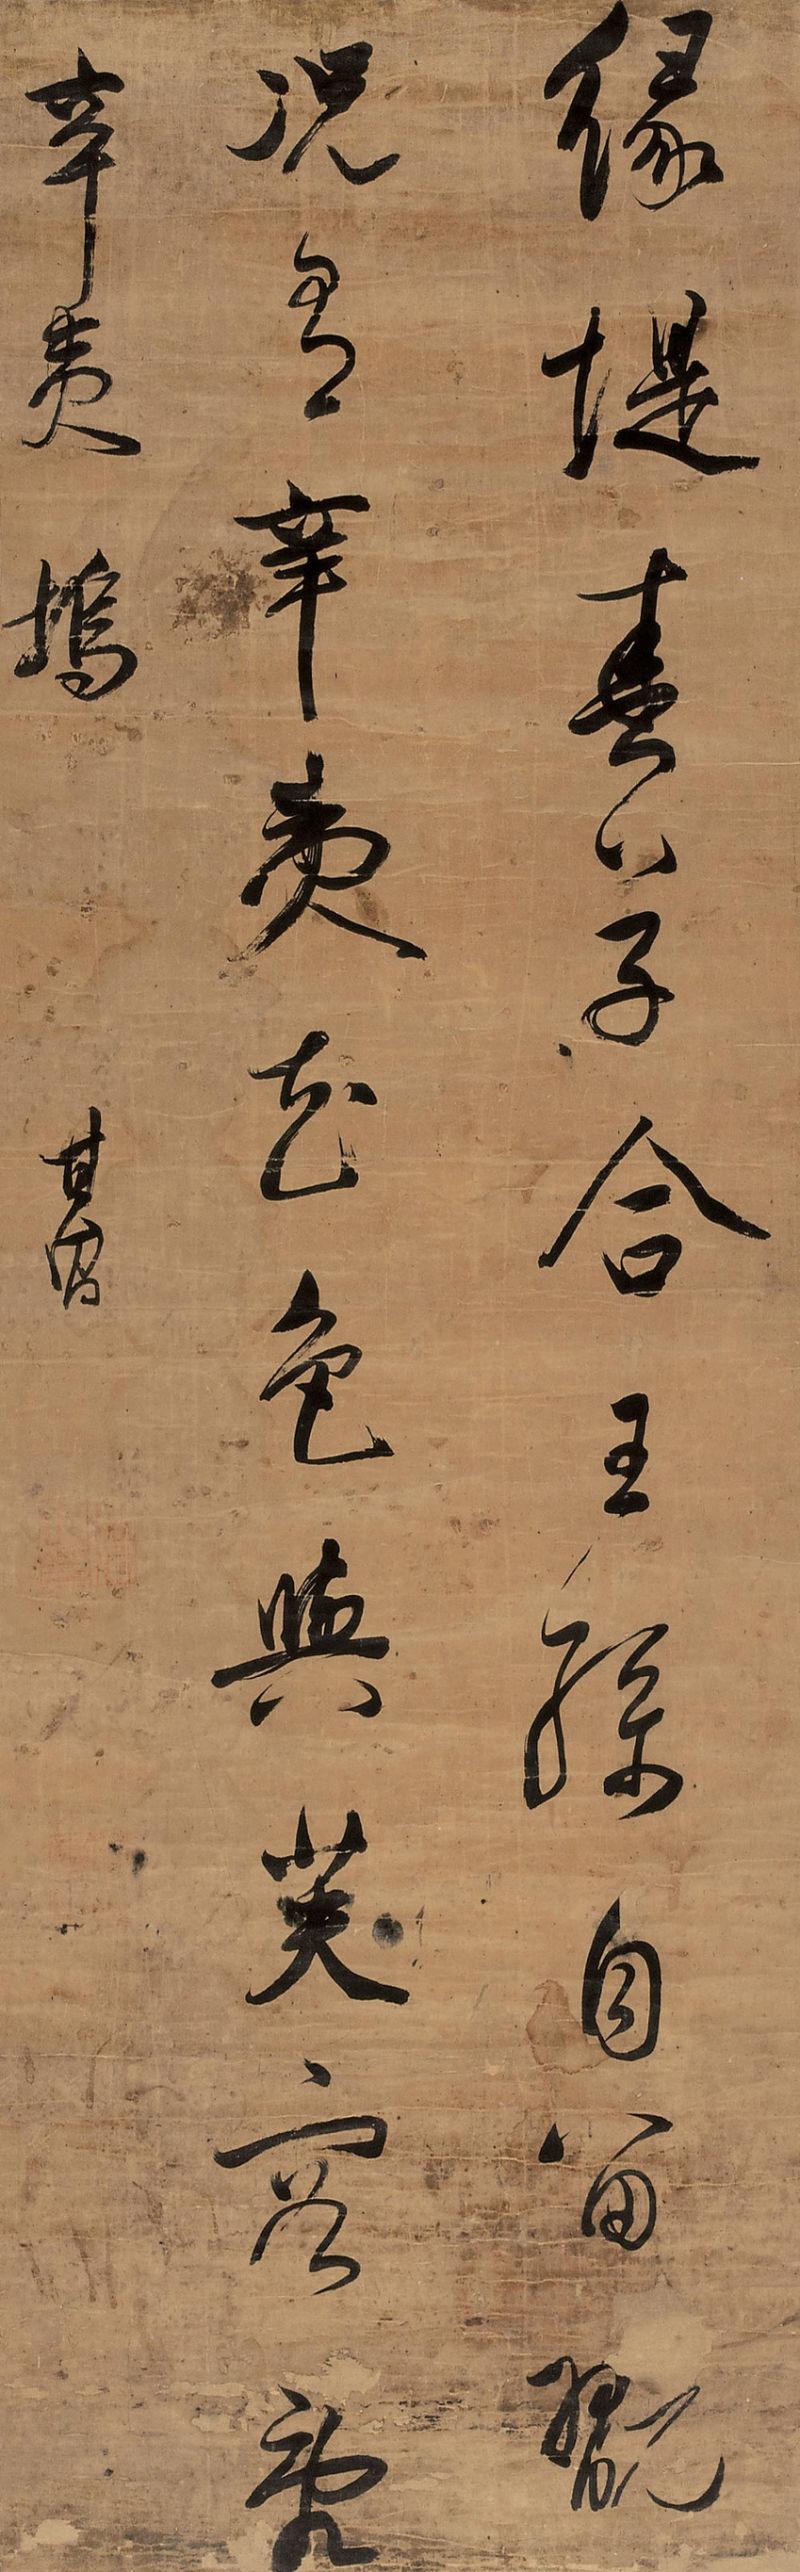 綠堤春草合王孫自留翫
況有辛夷花色與芙容亂
辛夷塢 其昌